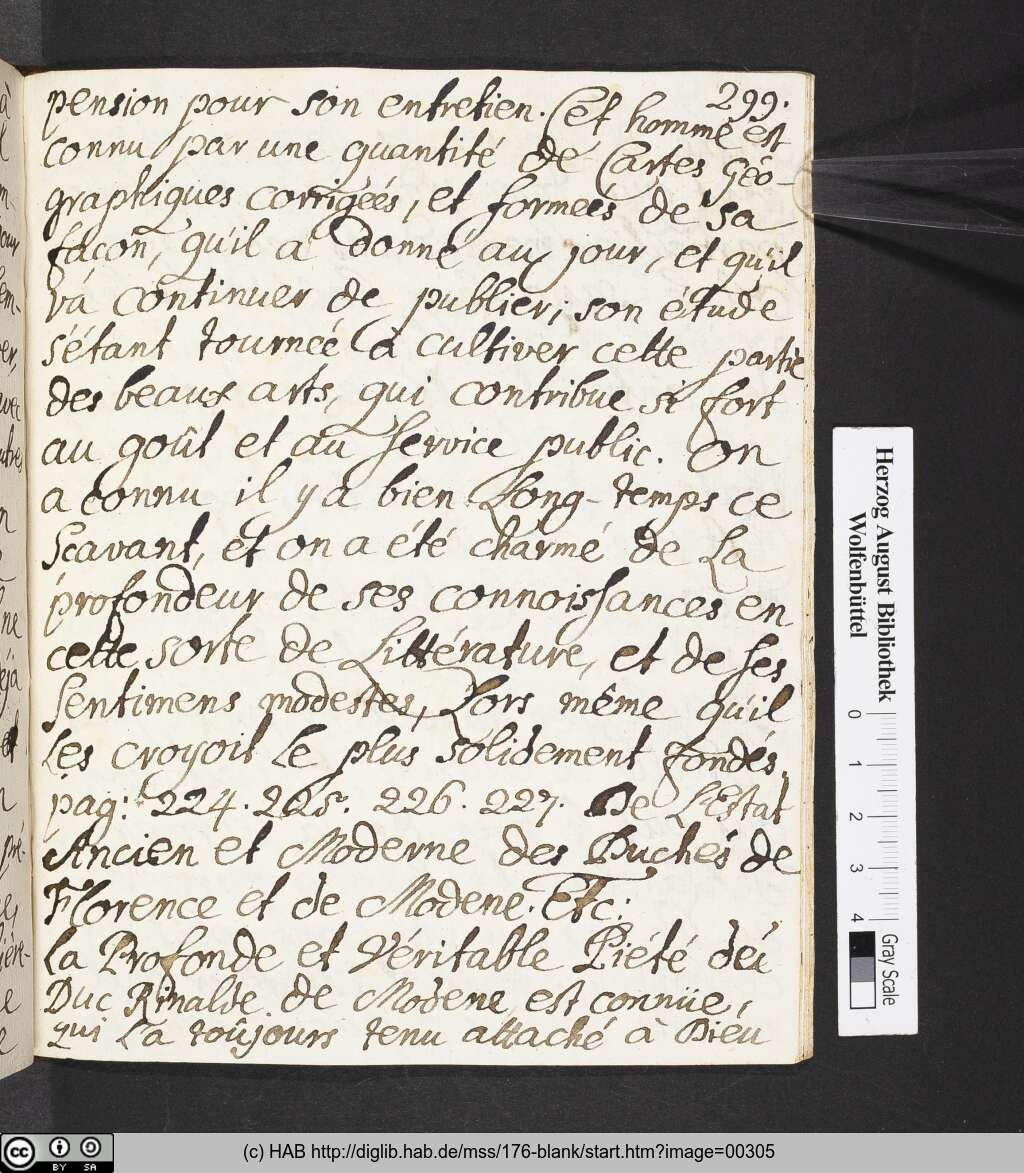 299.
pension pour son entretien. Cet homme est
connu par une quantité de Cartes Géo-
graphiques corrigéés, et formeés de sa
façon, qu'il a donné au jour, et qu'il
vá continuer de publier; son étude
s'étant tourneé à cultiver cette partie
des beaux arts, qui contribue si fort
au goût et au service public. On
a connu il y a bien Long-temps ce
Scavant, et on a été charmé de La
profondeur de ses connoissances en
cette sorte de Littérature, et de ses
Sentimens modestes, Lors même qu'il
Les croyoit Le plus solidement fondés,
pag: 224. 225. 226. 227. De L'Estat
Ancien et Moderne des Duchés de
Florence et de Modene. Etc:
La Profonde et Véritable Piété du
Duc Rinalde de Modene est connüe,
qui L'a toûjours tenu attaché à Dieu
Herzog August Bibliothek
Wolfenbüttel
0 1 2 3 4
Gray Scale
(c) HAB http://diglib.hab.de/mss/176-blank/start.htm?image=00305
cc BY SA